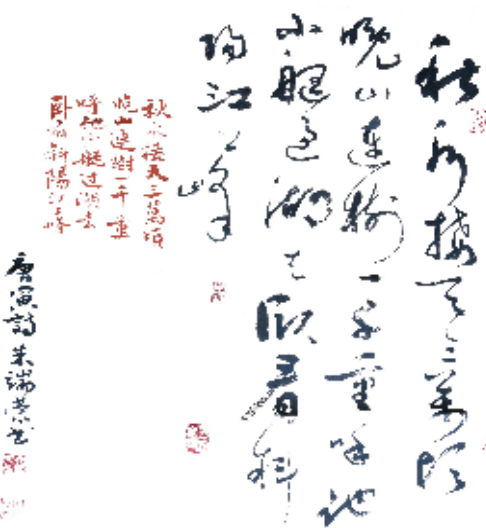 秋水接天三萬頃
晚山連樹一千重呼他
小艇過湖去臥看斜
陽江上峰
秋水接天三萬頃
晚山連樹一千重
呼他小艇过湖去
卧看斜陽江上峰
唐寅詩 朱端书